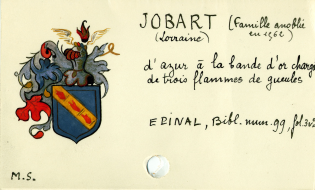 JOBART (Famille anoblie
(Lorraine) en 1562)
d'azur à la bande d'or chargée
de trois flammes de gueules
EPINAL, Bibl. mun. 99, fol. 3v°
M.S.